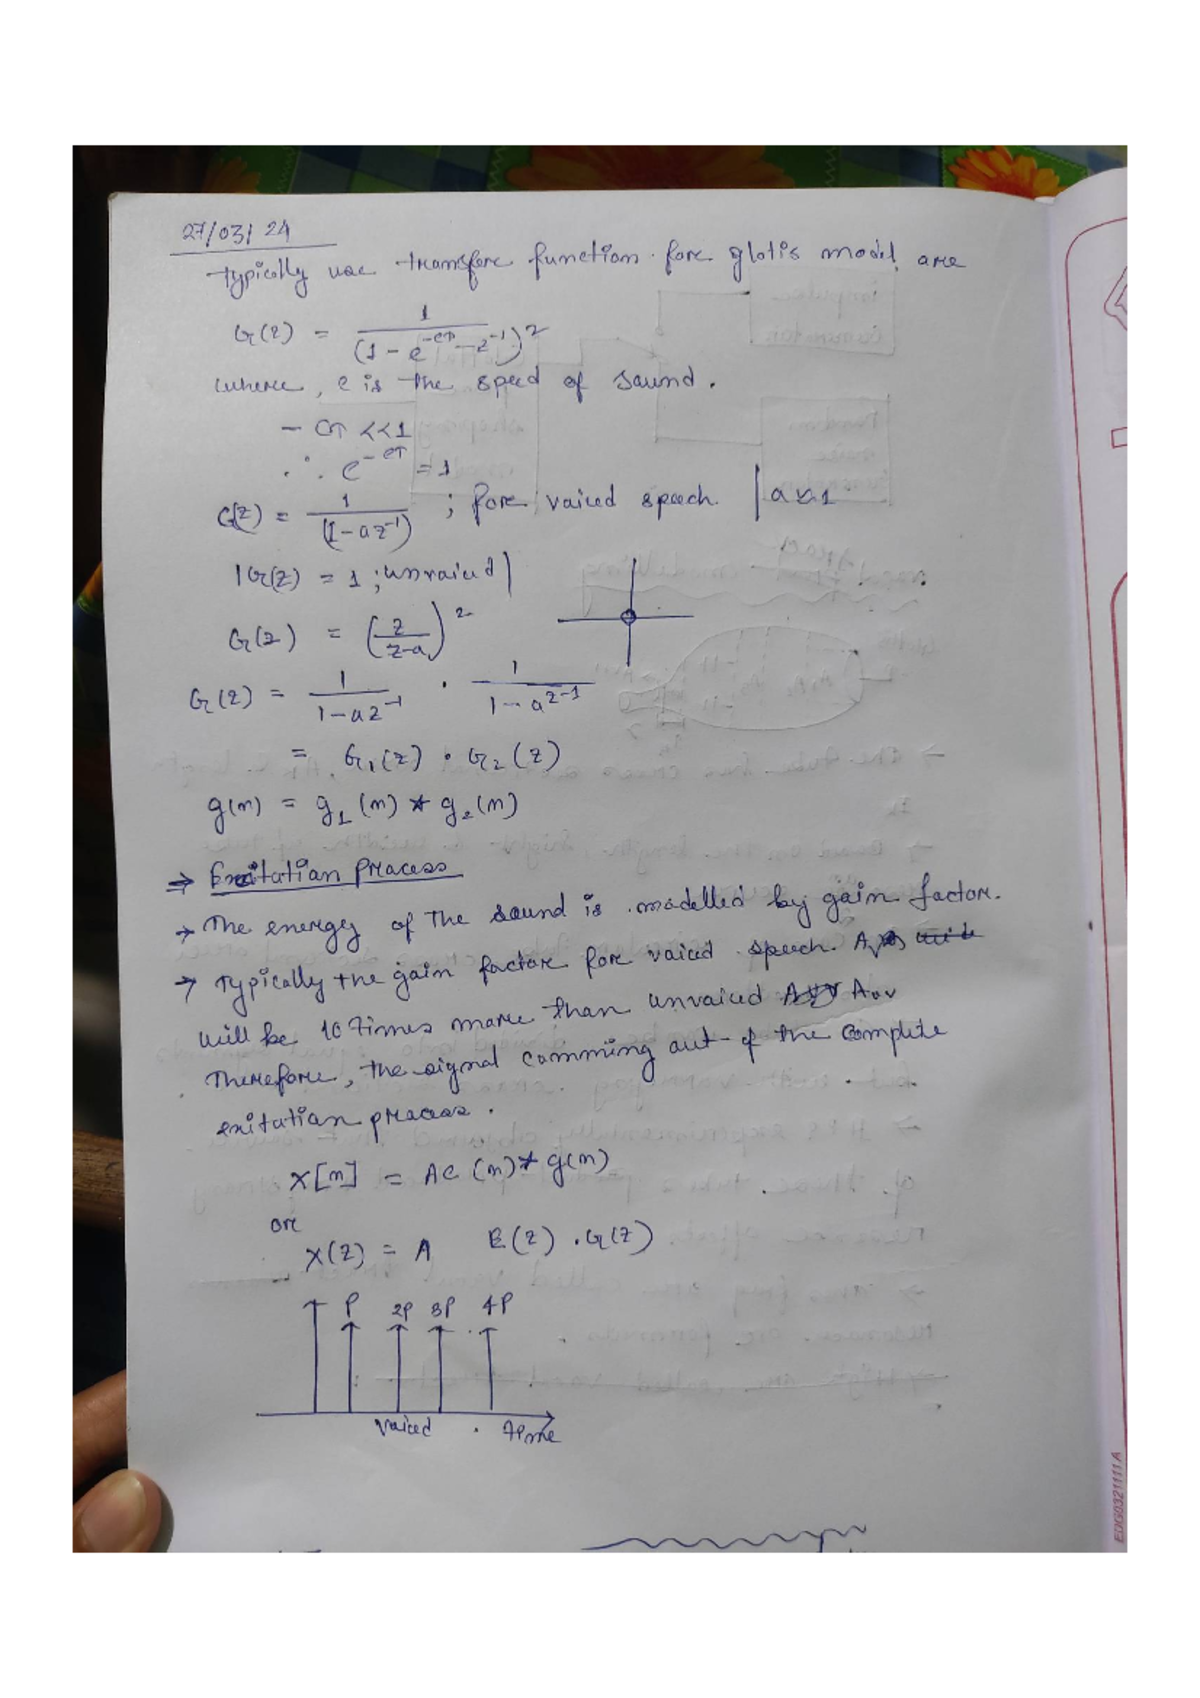 27/03/24
Typically use transfere function fore glotis model are
G(z) = 1 / (1 - e^-cT - z^-1)^2
where, c is the speed of sound.
- cT <<1
∴ e^-cT = 1
G(z) = 1 / (1-az^-1) ; fore vaiced speech. | a ≈ 1
|G(z) = 1 ; unvaiced|
G(z) = (z / z-a)^2
G(z) = 1 / 1-az^-1 · 1 / 1-az^-1
= G1(z) · G2(z)
g(n) = g1(n) * g2(n)
⇒ Exitation Process
→ The energy of The sound is modelled by gain factor.
→ Typically the gain factore fore vaiced speech. Av
will be 10 Times more than unvaiced Auv
Therefore, the signal comming out of the compute
exitation process.
X[n] = Ae(n)* g(n)
ore
X(z) = A E(z) . G(z)
P 2P 3P 4P
vaiced Time
EDG0321111A